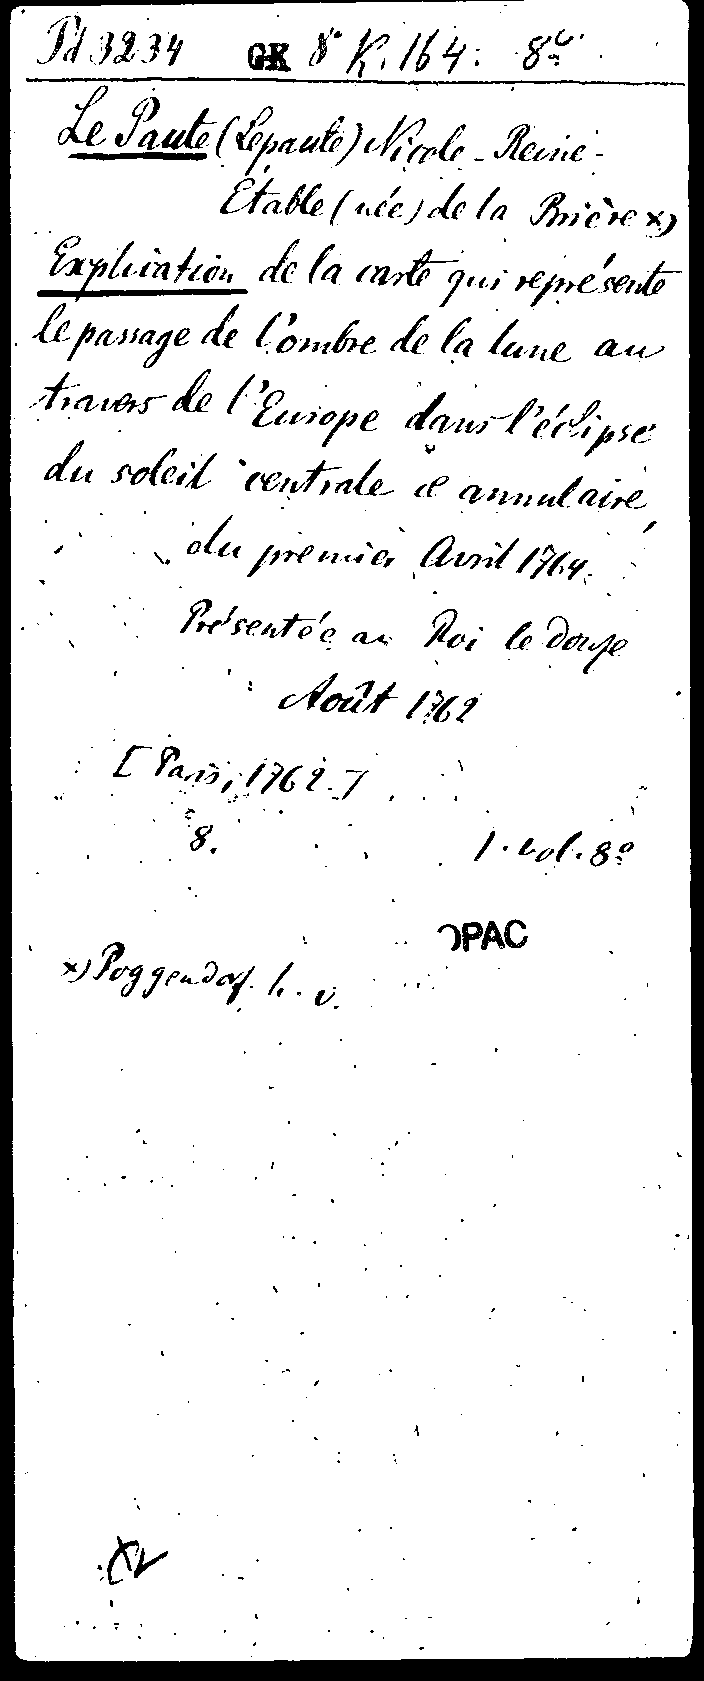 Pd 3234 GK 8° K. 164. 8°
Le Paute (Lepaute) Nicole-Reine-
Étable (née) de la Brière x)
Explication de la carte qui représente
le passage de l'ombre de la lune au
travers de l'Europe dans l'éclipse
du soleil centrale e annulaire
du premier Avril 1764.
Présentée au Roi le douze
Août 1762
[Paris, 1762.]
8. 1. vol. 8°
OPAC
x) Poggendorf. h. v.